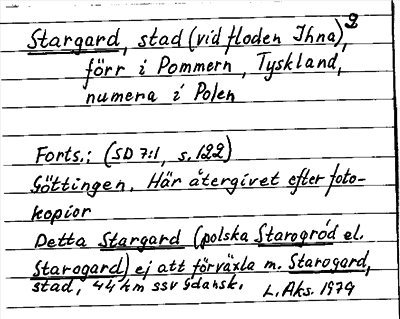 Stargard, stad (vid floden Ihna), 2
förr i Pommern, Tyskland,
numera i Polen
Forts.: (SD 7:1, s. 122)
Göttingen. Här återgivet efter foto-
kopior
Detta Stargard (polska Starogród el.
Starogard) ej att förväxla m. Starogard,
stad, 44 km ssv Gdansk.
L. Aks. 1979